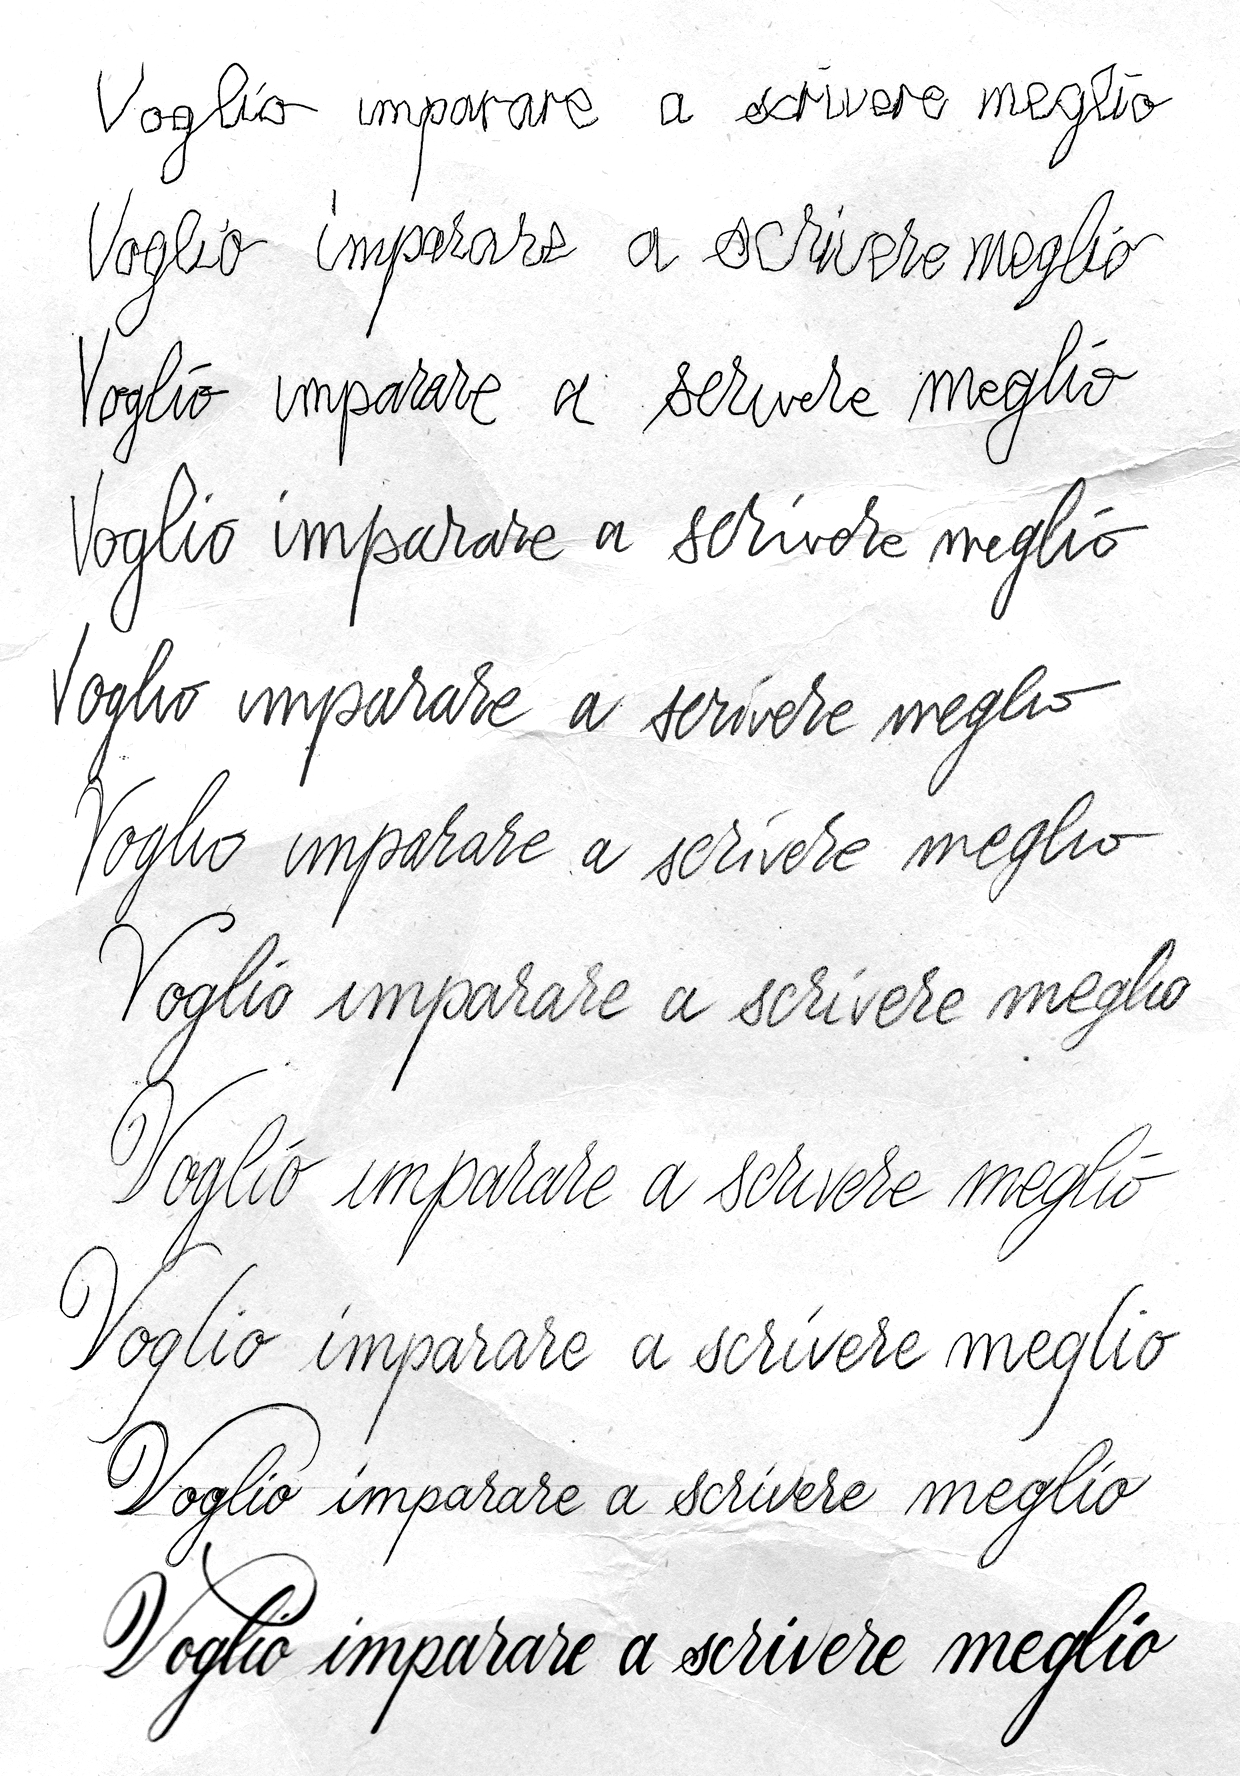 Voglio imparare a scrivere meglio
Voglio imparare a scrivere meglio
Voglio imparare a scrivere meglio
Voglio imparare a scrivere meglio
Voglio imparare a scrivere meglio
Voglio imparare a scrivere meglio
Voglio imparare a scrivere meglio
Voglio imparare a scrivere meglio
Voglio imparare a scrivere meglio
Voglio imparare a scrivere meglio
Voglio imparare a scrivere meglio